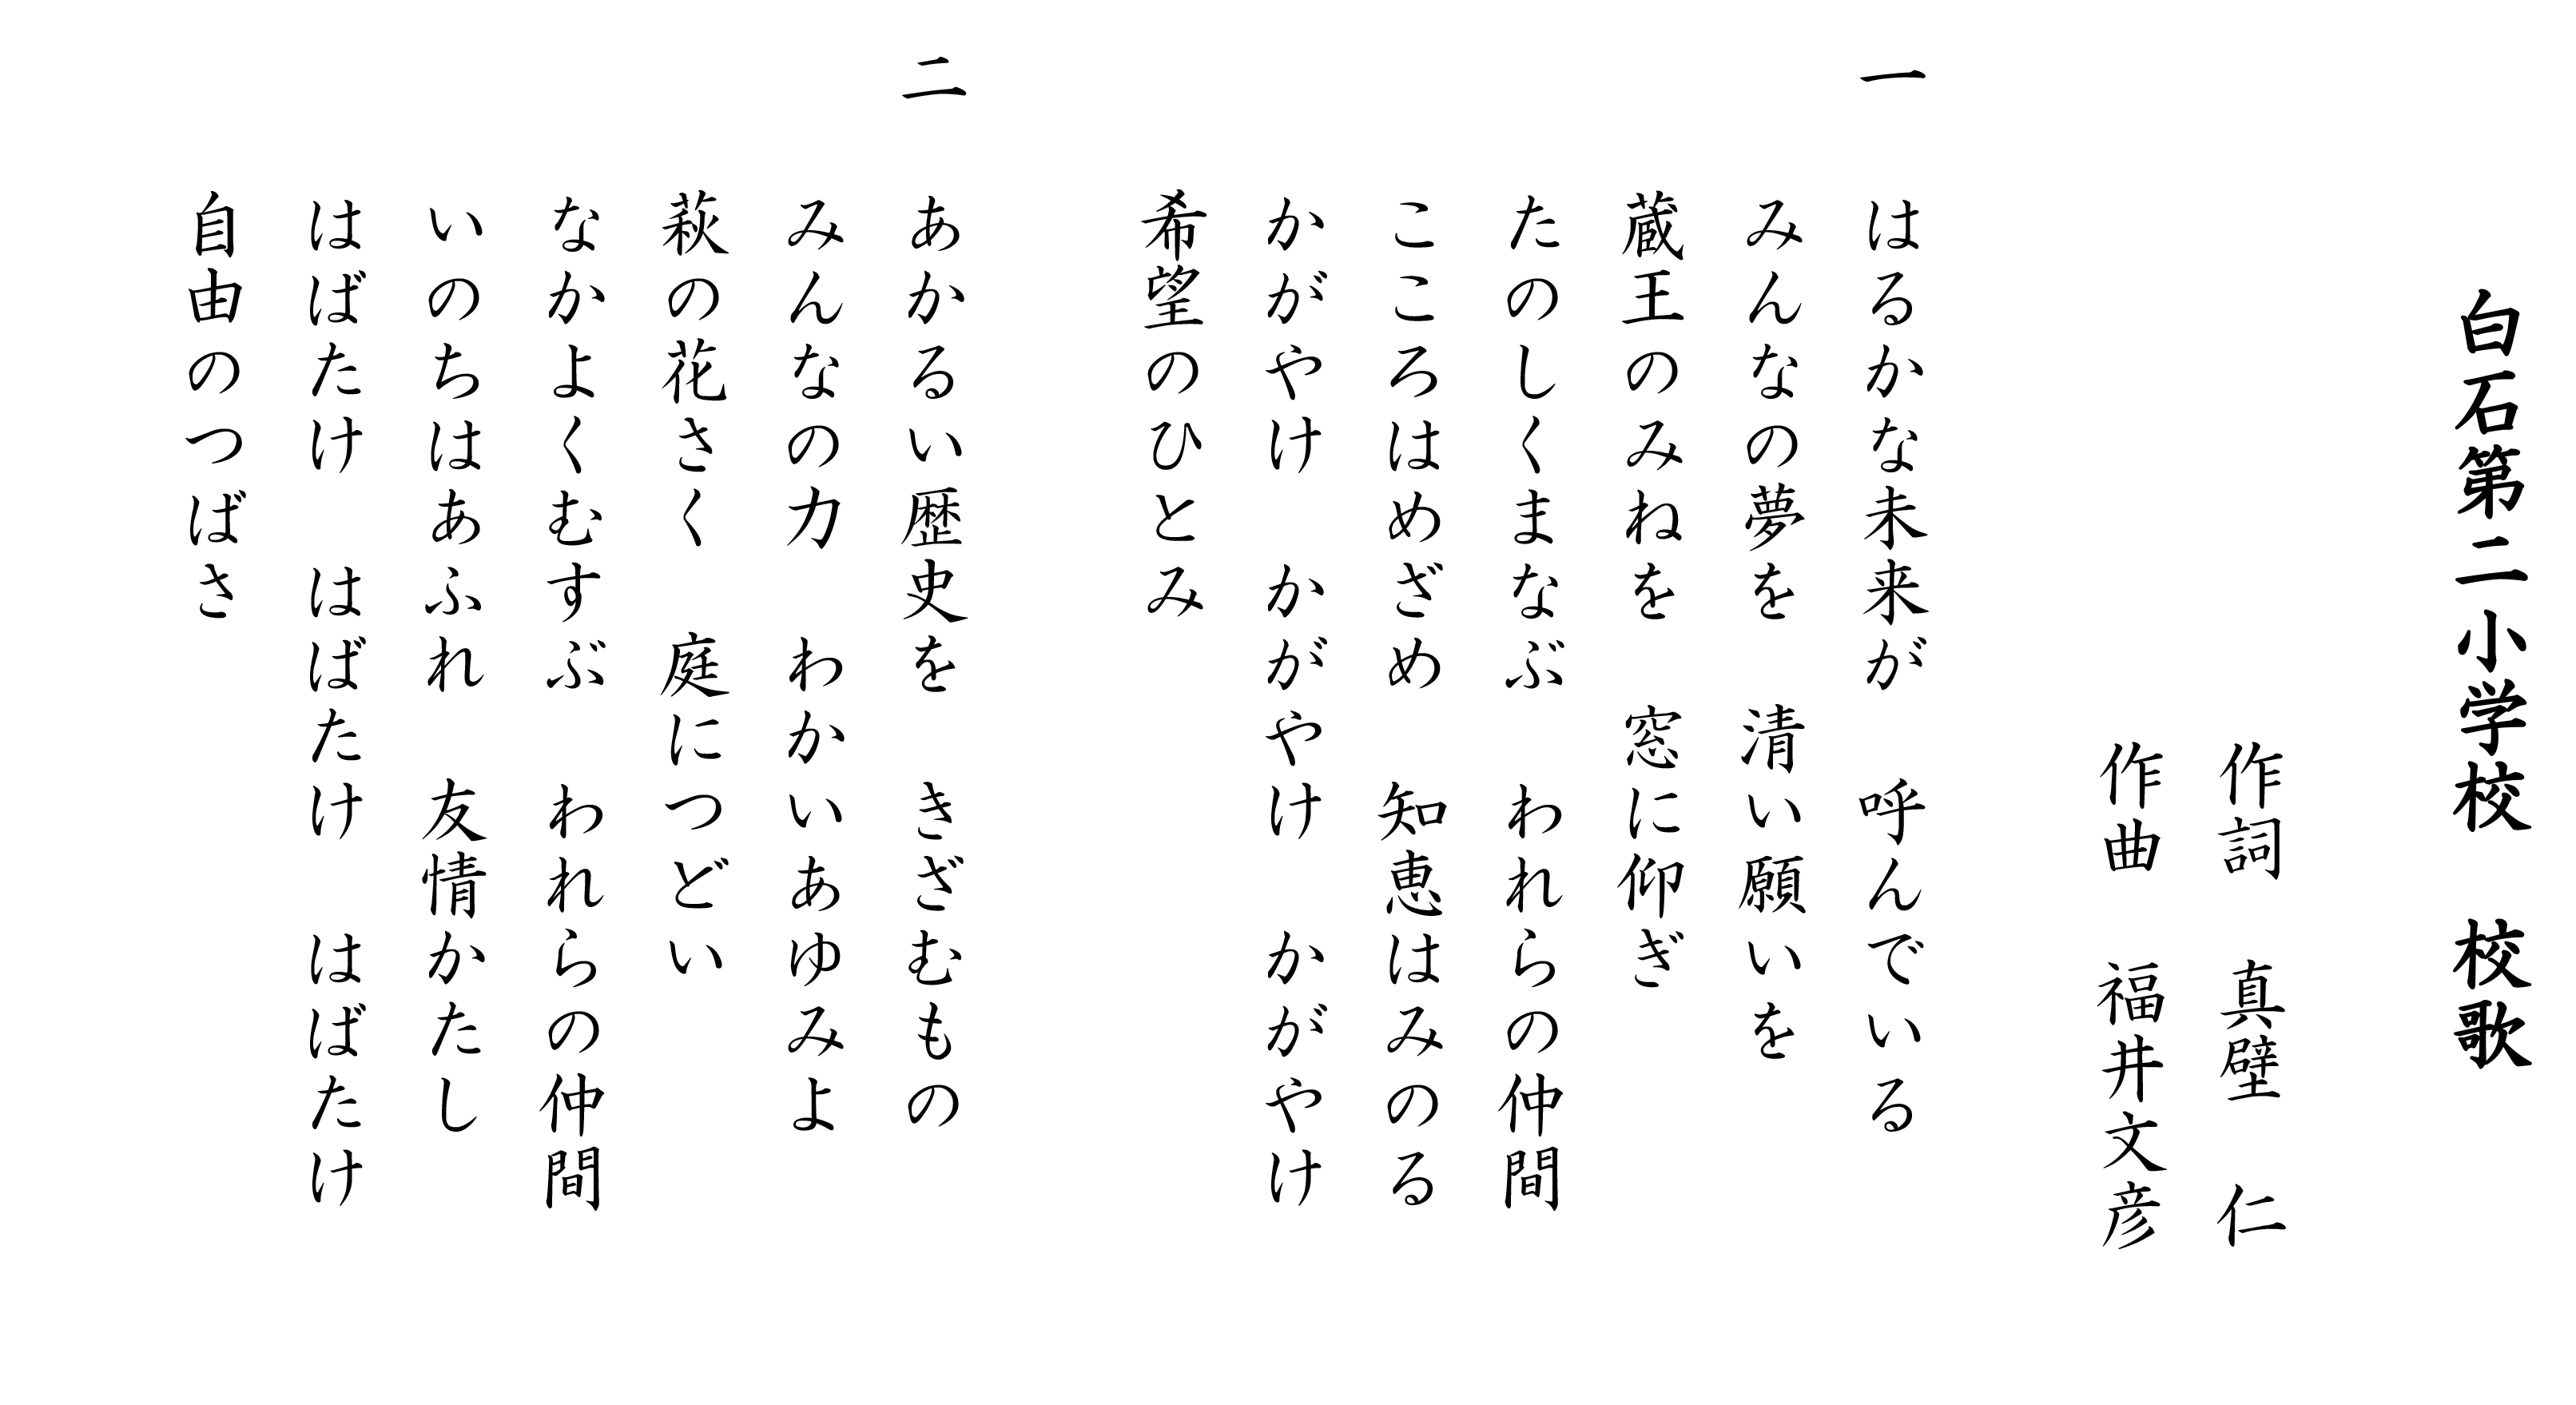 白石第二小学校　校歌
作詞　真壁　仁
作曲　福井文彦
一　はるかな未来が　呼んでいる
みんなの夢を　清い願いを
蔵王のみねを　窓に仰ぎ
たのしくまなぶ　われらの仲間
こころはめざめ　知恵はみのる
かがやけ　かがやけ　かがやけ
希望のひとみ
二　あかるい歴史を　きざむもの
みんなの力　わかいあゆみよ
萩の花さく　庭につどい
なかよくむすぶ　われらの仲間
いのちはあふれ　友情かたし
はばたけ　はばたけ　はばたけ
自由のつばさ